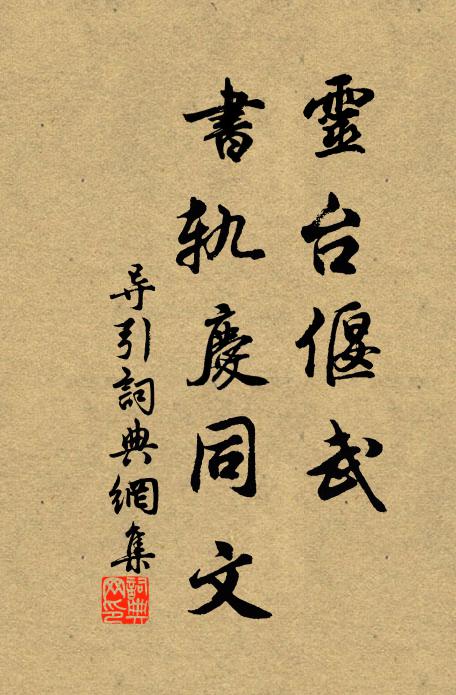 靈台偃武
書軌慶同文
导引詞典網集
詞典网印